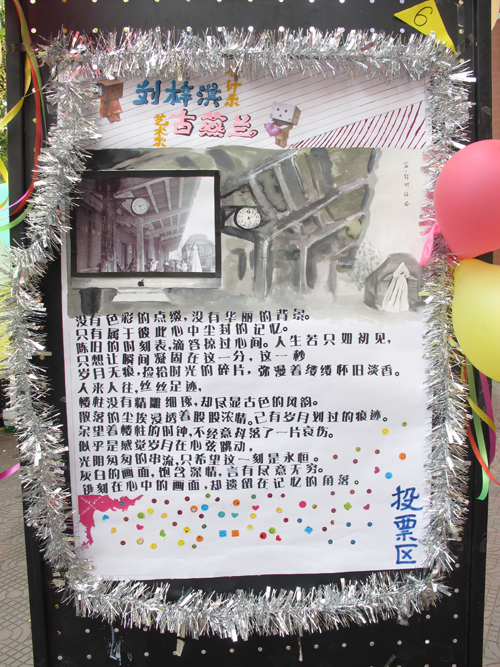 6
刘梓淇
设计系
艺术系
古燕兰
没有色彩的点缀,没有华丽的背景。
只有属于彼此心中尘封的记忆。
陈旧的时刻表,滴答掠过心间。人生若只如初见,
只想让瞬间凝固在这一分,这一秒
岁月无痕,捡拾时光的碎片,弥漫着缕缕怀旧淡香。
人来人往,丝丝足迹,
楼柱没有精雕细琢,却尽显古色的风韵。
散落的尘埃浸透着股股浓情。已有岁月划过的痕迹。
呆望着楼柱的时钟,不经意抖落了一片哀伤。
似乎是感觉岁月在心弦跳动,
光阴匆匆的串流,只希望这一刻是永恒。
灰白的画面,饱含深情,言有尽意无穷。
镌刻在心中的画面,却遗留在记忆的角落。
投票区